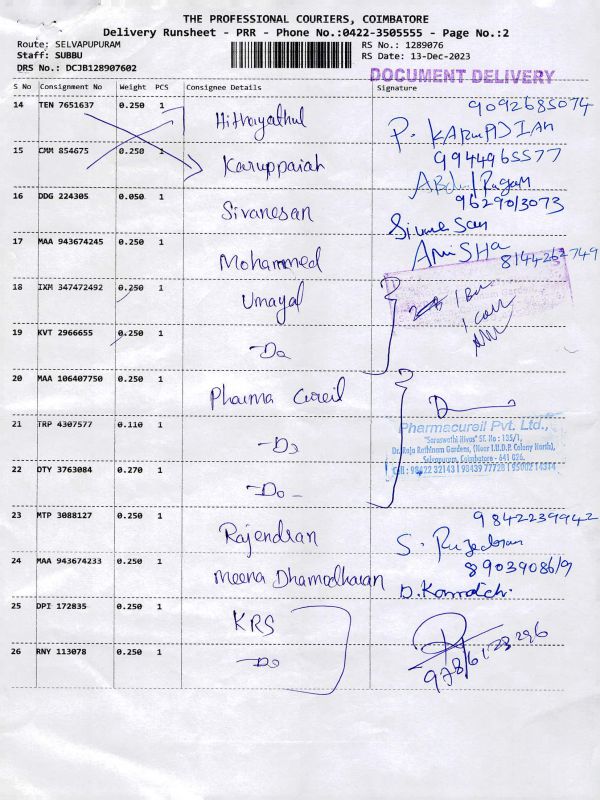 THE PROFESSIONAL COURIERS, COIMBATORE
Delivery Runsheet - PRR - Phone No.:0422-3505555 - Page No.:2
Route: SELVAPUPURAM RS No.: 1289076
Staff: SUBBU RS Date: 13-Dec-2023
DRS No.: DCJB128907602
DOCUMENT DELIVERY
S No Consignment No Weight PCS Consignee Details Signature
14 TEN 7651637 0.250 1 Hithayathul 9092685074
P. KARUPPIAH
15 CMM 854675 0.250 1 Karuppaiah 9944965577
Abdul
16 DDG 224305 0.050 1 Sivanesan 9629013073
Sivanesan
17 MAA 943674245 0.250 1 Mohammed AniSHA 8144262749
18 IXM 347472492 0.250 1 Umayal
19 KVT 2966655 0.250 1 -Do
20 MAA 106407750 0.250 1 Pharma Cureil
21 TRP 4307577 0.110 1 -Do
Pharmacureil Pvt. Ltd.,
"Saraswathi Nivas" Sf. No : 135/1,
Dr. Raja Rathinam Gardens, (Near T.U.D.P. Colony North),
Selvapuram, Coimbatore - 641 026.
22 OTY 3763084 0.270 1 -Do-
Cell : 98422 32143 | 98439 77728 | 95002 14314
23 MTP 3088127 0.250 1 Rajendran 9842239942
S. Rajendran
24 MAA 943674233 0.250 1 Meena Dhamodharan 8903908619
D. Kamatchi
25 DPI 172835 0.250 1 KRS
26 RNY 113078 0.250 1 -Do